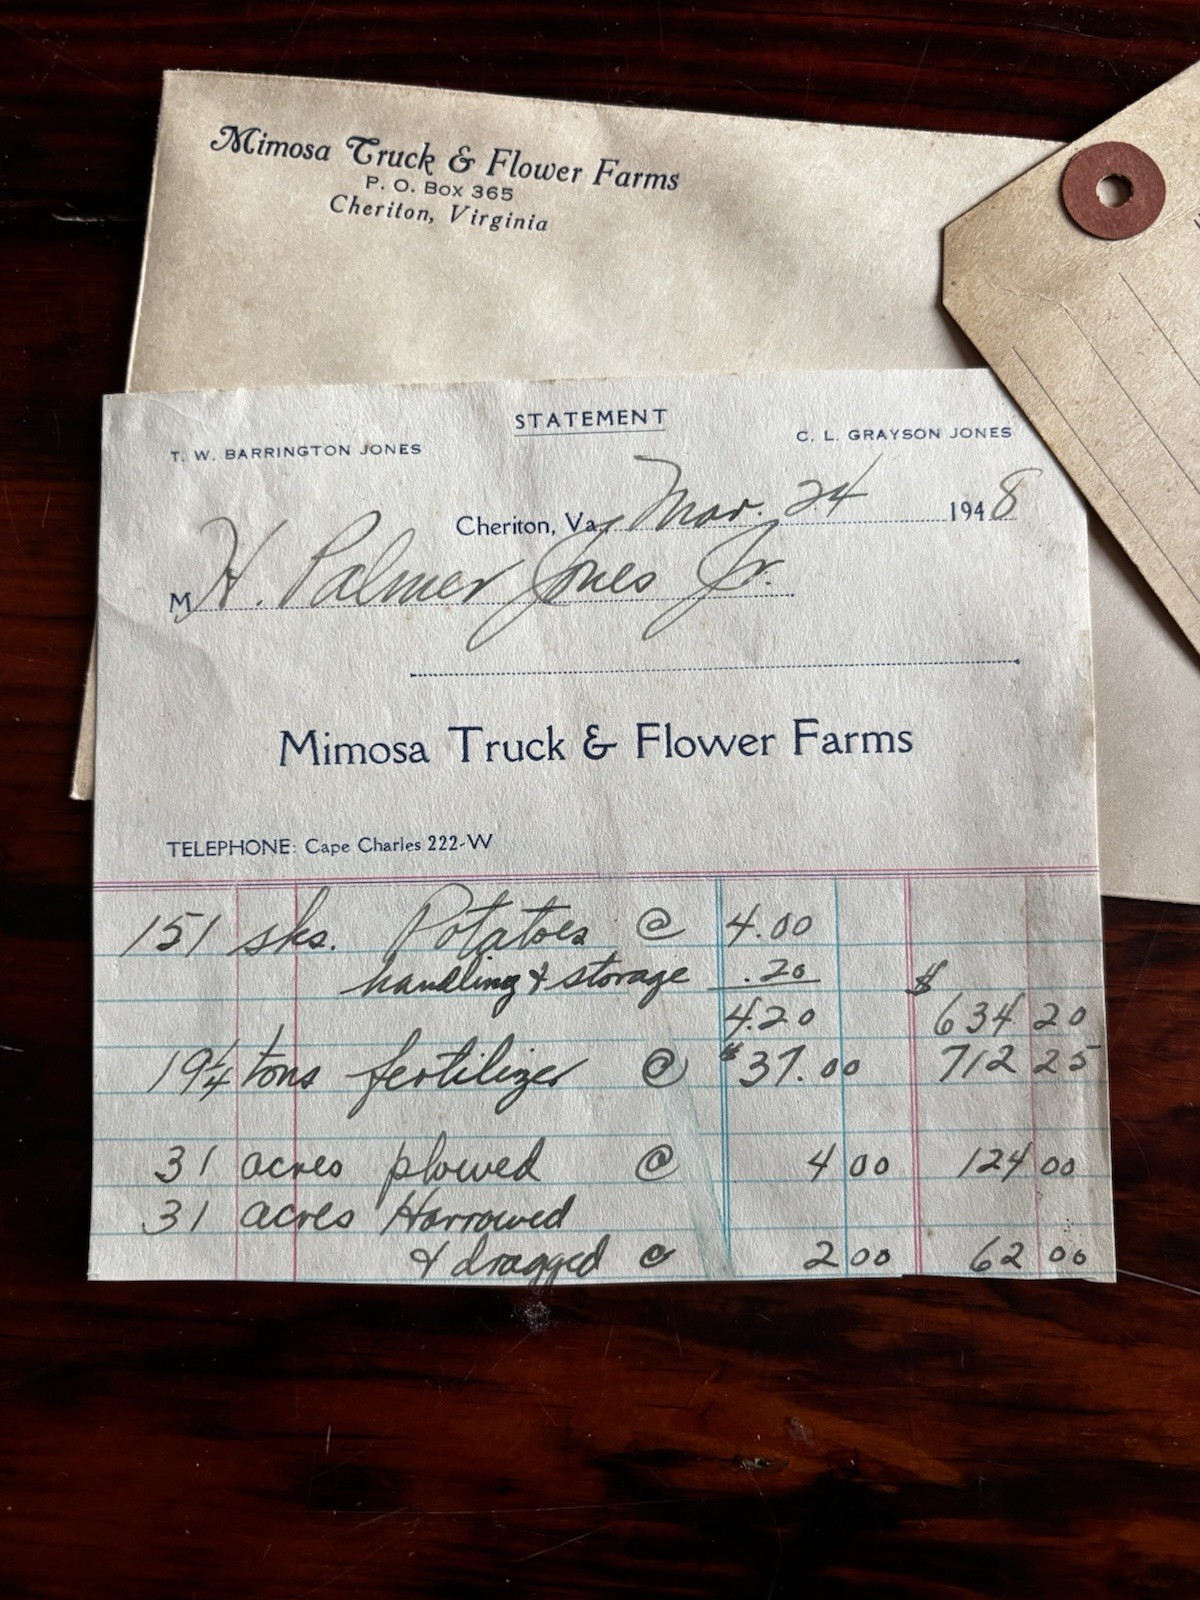 Mimosa Truck & Flower Farms
P. O. Box 365
Cheriton, Virginia
STATEMENT
T. W. BARRINGTON JONES C. L. GRAYSON JONES
Cheriton, Va., Mar. 24 1948
M H. Palmer Jones Jr.
Mimosa Truck & Flower Farms
TELEPHONE: Cape Charles 222-W
151 sks. Potatoes @ 4.00
handling & storage .20 $
4.20 634 20
19 1/4 tons fertilizer @ $37.00 712 25
31 acres plowed @ 4 00 124 00
31 acres Harrowed
& dragged @ 2 00 62 00